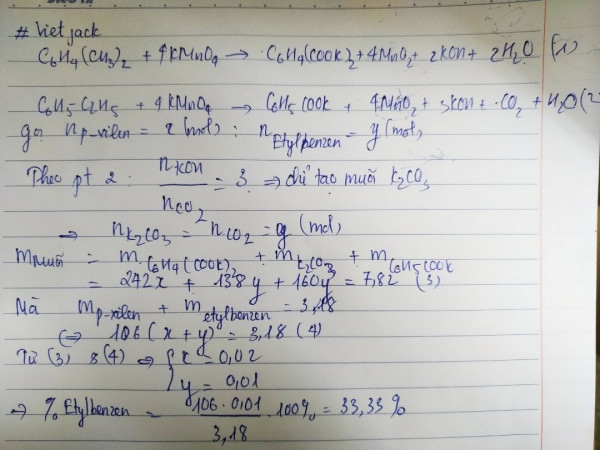 # Vietjack
C6H4(CH3)2 + 4KMnO4 → C6H4(COOK)2 + 4MnO2 + 2KOH + 2H2O (1)
C6H5-C2H5 + 4KMnO4 → C6H5COOK + 4MnO2 + 3KOH + CO2 + H2O (2)
gọi n p-xilen = x (mol) ; n Etylbenzen = y (mol)
Theo pt 2. nKOH / nCO2 = 3 ⇒ chỉ tạo muối K2CO3
→ nK2CO3 = nCO2 = y (mol)
m muối = m C6H4(COOK)2 + m K2CO3 + m C6H5COOK
= 242x + 138y + 160y = 7,82 (3)
Mà m p-xilen + m etylbenzen = 3,18
⇔ 106(x + y) = 3,18 (4)
Từ (3) & (4) ⇒ { x = 0,02
y = 0,01
→ % Etylbenzen = 106.0,01 / 3,18 . 100% = 33,33%